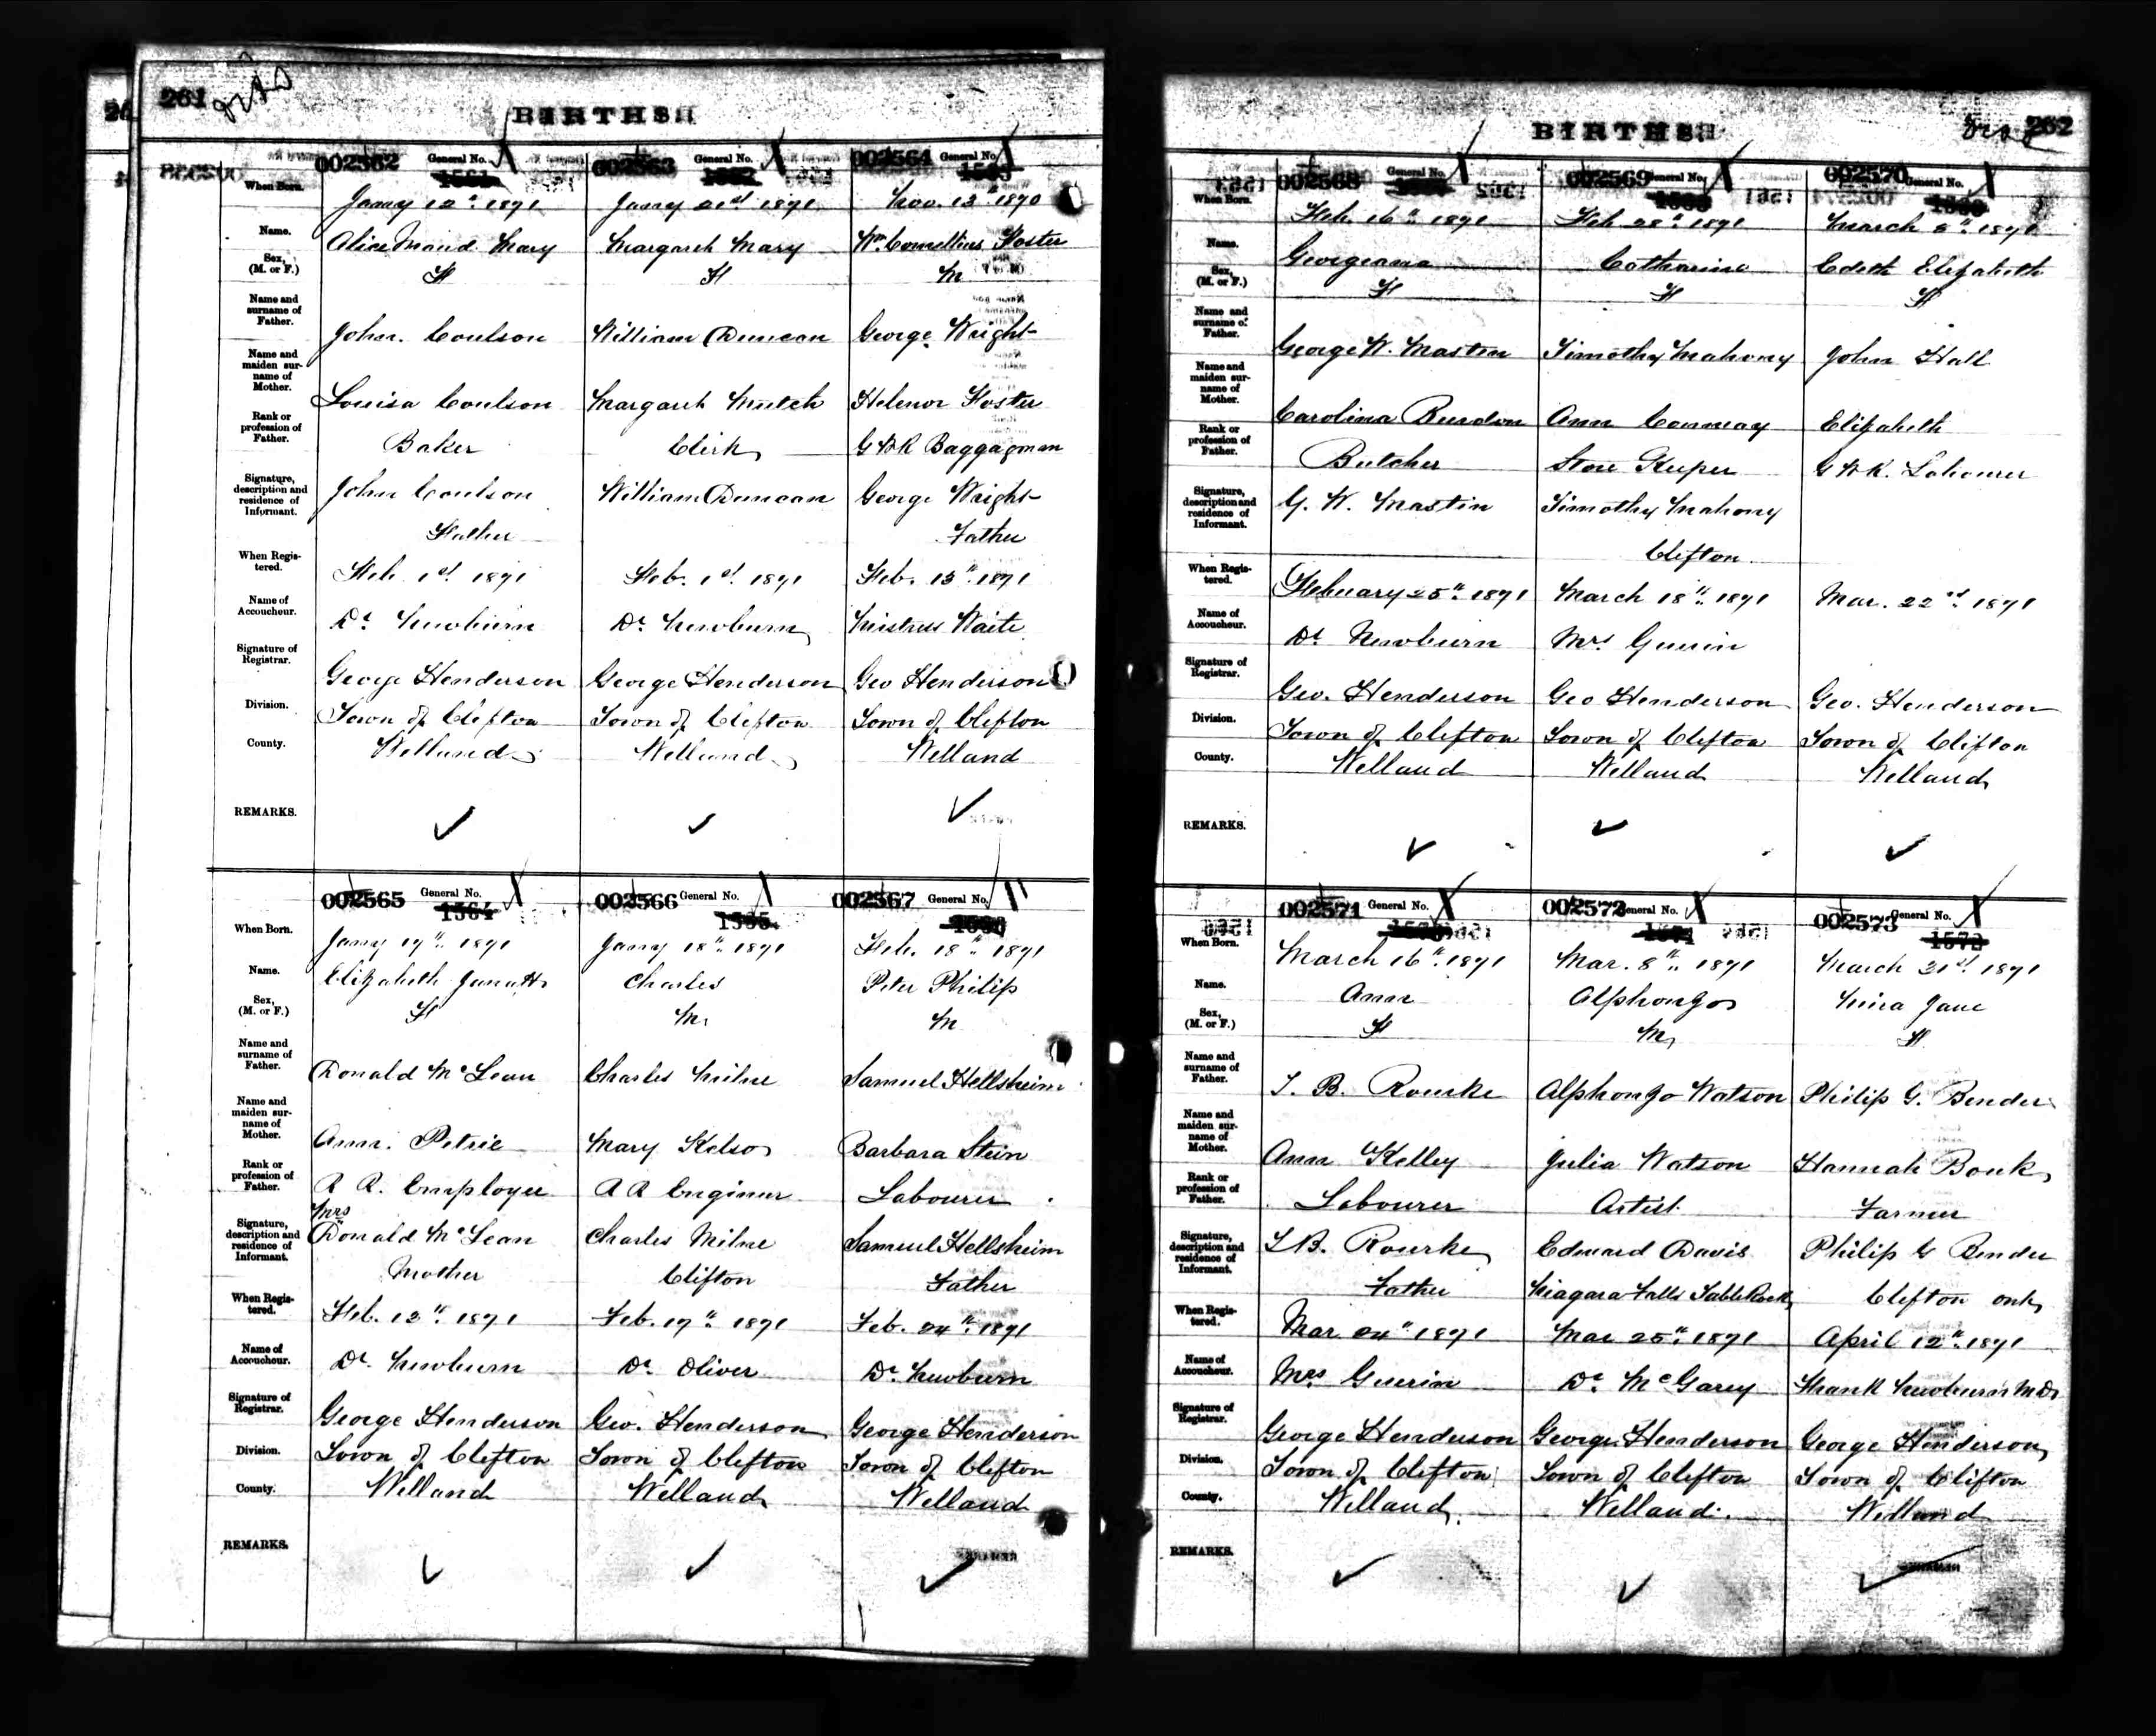 261
BIRTHS
002562 General No. 1561
002563 General No. 1562
002564 General No. 1563
When Born. Jany 12th 1871 Jany 21st 1871 Nov. 13th 1870
Name. Alice Maud Mary Margaret Mary Wm. Cornellius Foster
Sex, (M. or F.) F F M
Name and surname of Father. John Coulson William Duncan George Wright
Name and maiden surname of Mother. Louisa Coulson Margaret Mutch Helenor Foster
Rank or profession of Father. Baker Clerk G W R Baggagman
Signature, description and residence of Informant. John Coulson William Duncan George Wright
Father Father
When Registered. Feb. 1st 1871 Feb. 1st 1871 Feb. 13th 1871
Name of Accoucheur. Dr. Newburn Dr. Newburn Mistress Waite
Signature of Registrar. George Henderson George Henderson Geo Henderson
Division. Town of Clifton Town of Clifton Town of Clifton
County. Welland Welland Welland
REMARKS.
002565 General No. 1564
002566 General No. 1565
002567 General No.
When Born. Jany 19th 1871 Jany 18th 1871 Feb. 18th 1871
Name. Elizabeth Charles Peter Philip
Sex, (M. or F.) F M M
Name and surname of Father. Donald McLean Charles Milne Samuel Hellsheim
Name and maiden surname of Mother. Ann Petrie Mary Kelso Barbara Stein
Rank or profession of Father. R R. Employee R R Enginer Labourer
Mrs
Signature, description and residence of Informant. Donald McLean Charles Milne Samuel Hellsheim
Mother Clifton Father
When Registered. Feb. 13th 1871 Feb. 19th 1871 Feb. 24th 1871
Name of Accoucheur. Dr. Newburn Dr. Oliver Dr. Newburn
Signature of Registrar. George Henderson Geo. Henderson George Henderson
Division. Town of Clifton Town of Clifton Town of Clifton
County. Welland Welland Welland
REMARKS.
262
BIRTHS
002568 General No.
002569 General No.
002570 General No.
When Born. Feb. 16th 1871 Feb 28th 1871 March 8th 1871
Name. Georgeana Catharine Edeth Elizabeth
Sex, (M. or F.) F F F
Name and surname of Father. George W. Mastin Timothy Mahoney John Hall
Name and maiden surname of Mother. Carolina Burdon Ann Conway Elizabeth
Rank or profession of Father. Butcher Store Keeper G W R. Labourer
Signature, description and residence of Informant. G. W. Mastin Timothy Mahony
Clifton
When Registered. Febuary 25th 1871 March 18th 1871 Mar. 22nd 1871
Name of Accoucheur. Dr Newburn Mrs. Guerin
Signature of Registrar. Geo. Henderson Geo Henderson Geo. Henderson
Division. Town of Clifton Town of Clifton Town of Clifton
County. Welland Welland Welland
REMARKS.
002571 General No.
002572 General No.
002573 General No. 1572
When Born. March 16th 1871 Mar. 8th 1871 March 21st 1871
Name. Ann Alphonzo Mina Jane
Sex, (M. or F.) F M F
Name and surname of Father. T. B. Rourke Alphonzo Watson Philip G. Bender
Name and maiden surname of Mother. Ann Kelley Julia Watson Hannah Bouk
Rank or profession of Father. Labourer Artist Farmer
Signature, description and residence of Informant. T B. Rourke Edward Davis Philip G Bender
Father Niagara Falls Table Rock Clifton Ont
When Registered. Mar 24th 1871 Mar 25th 1871 April 12th 1871
Name of Accoucheur. Mrs Guerin Dr. McGarry Frank Newburn MD
Signature of Registrar. George Henderson George Henderson George Henderson
Division. Town of Clifton Town of Clifton Town of Clifton
County. Welland Welland Welland
REMARKS.